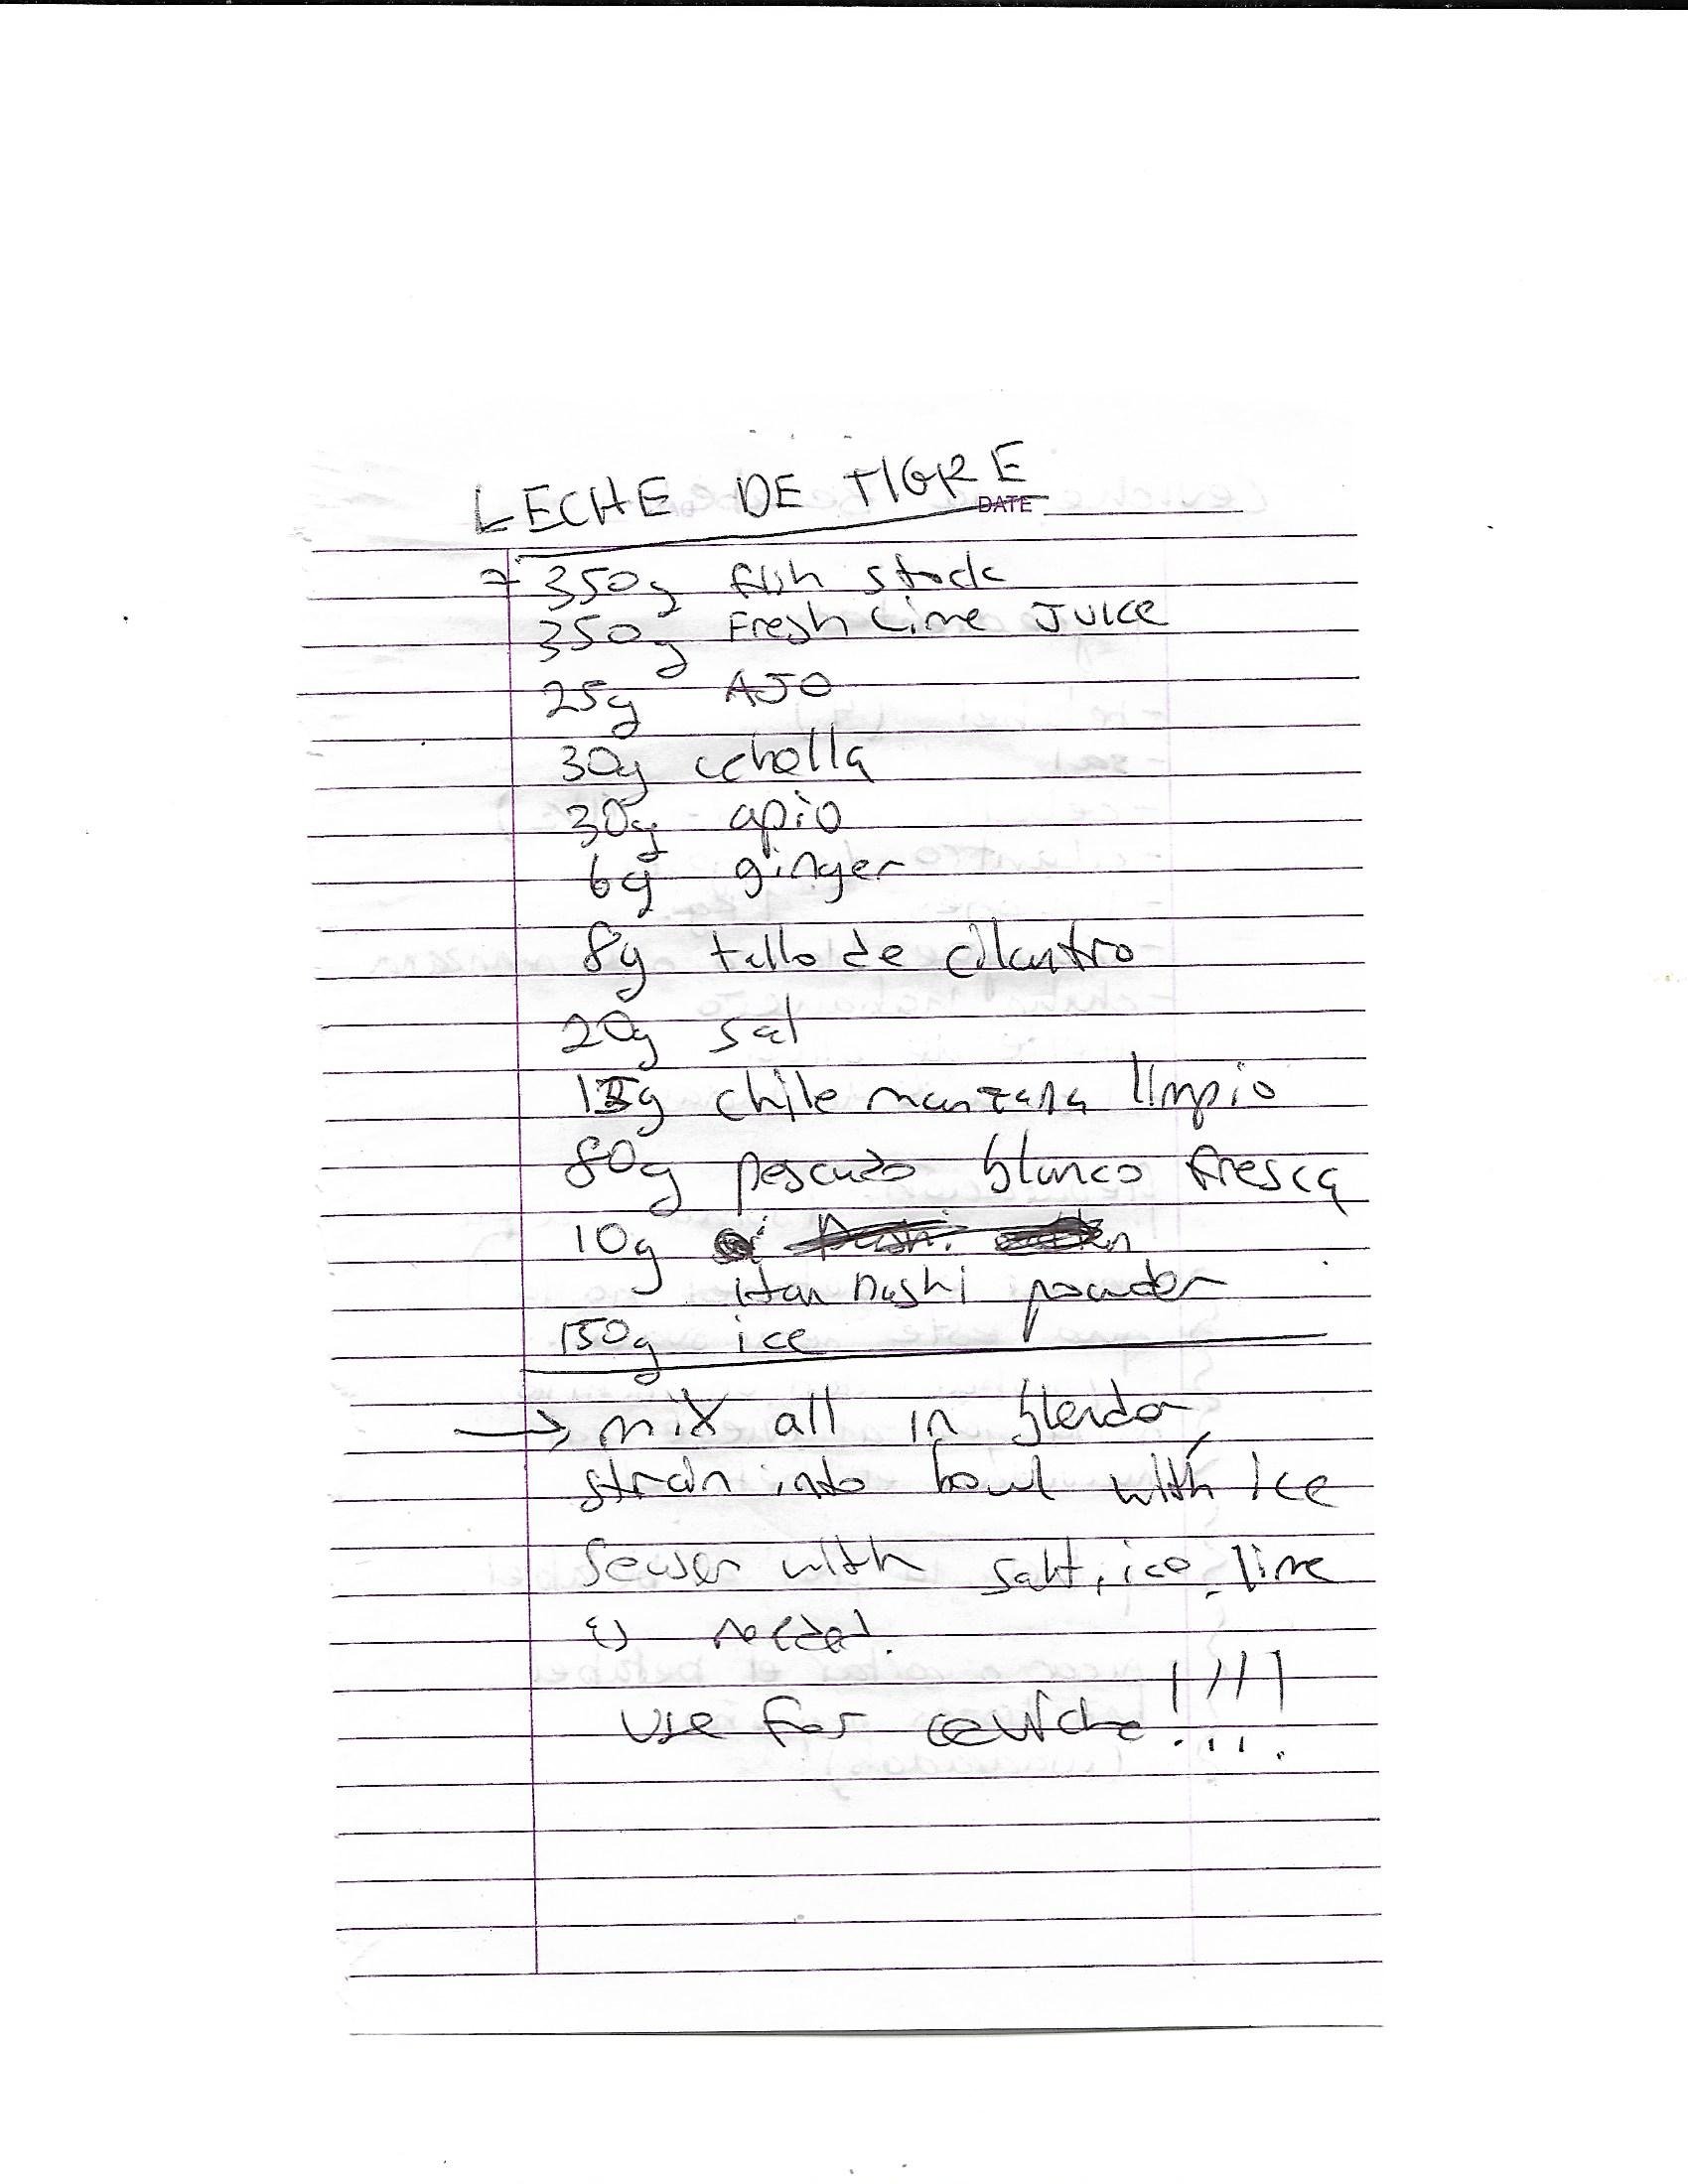 LECHE DE TIGRE
DATE
350g fish stock
350g Fresh Lime JUICE
25g AJO
30g cebolla
30g apio
6g ginger
8g tallo de cilantro
20g sal
g chile manzana limpio
80g pescado blanco fresca
10g
Hon Dashi powder
150g ice
→ mix all in blendor,
strain into bowl with ice
Season with salt, ice, lime
as needed.
use for ceviche!!!!